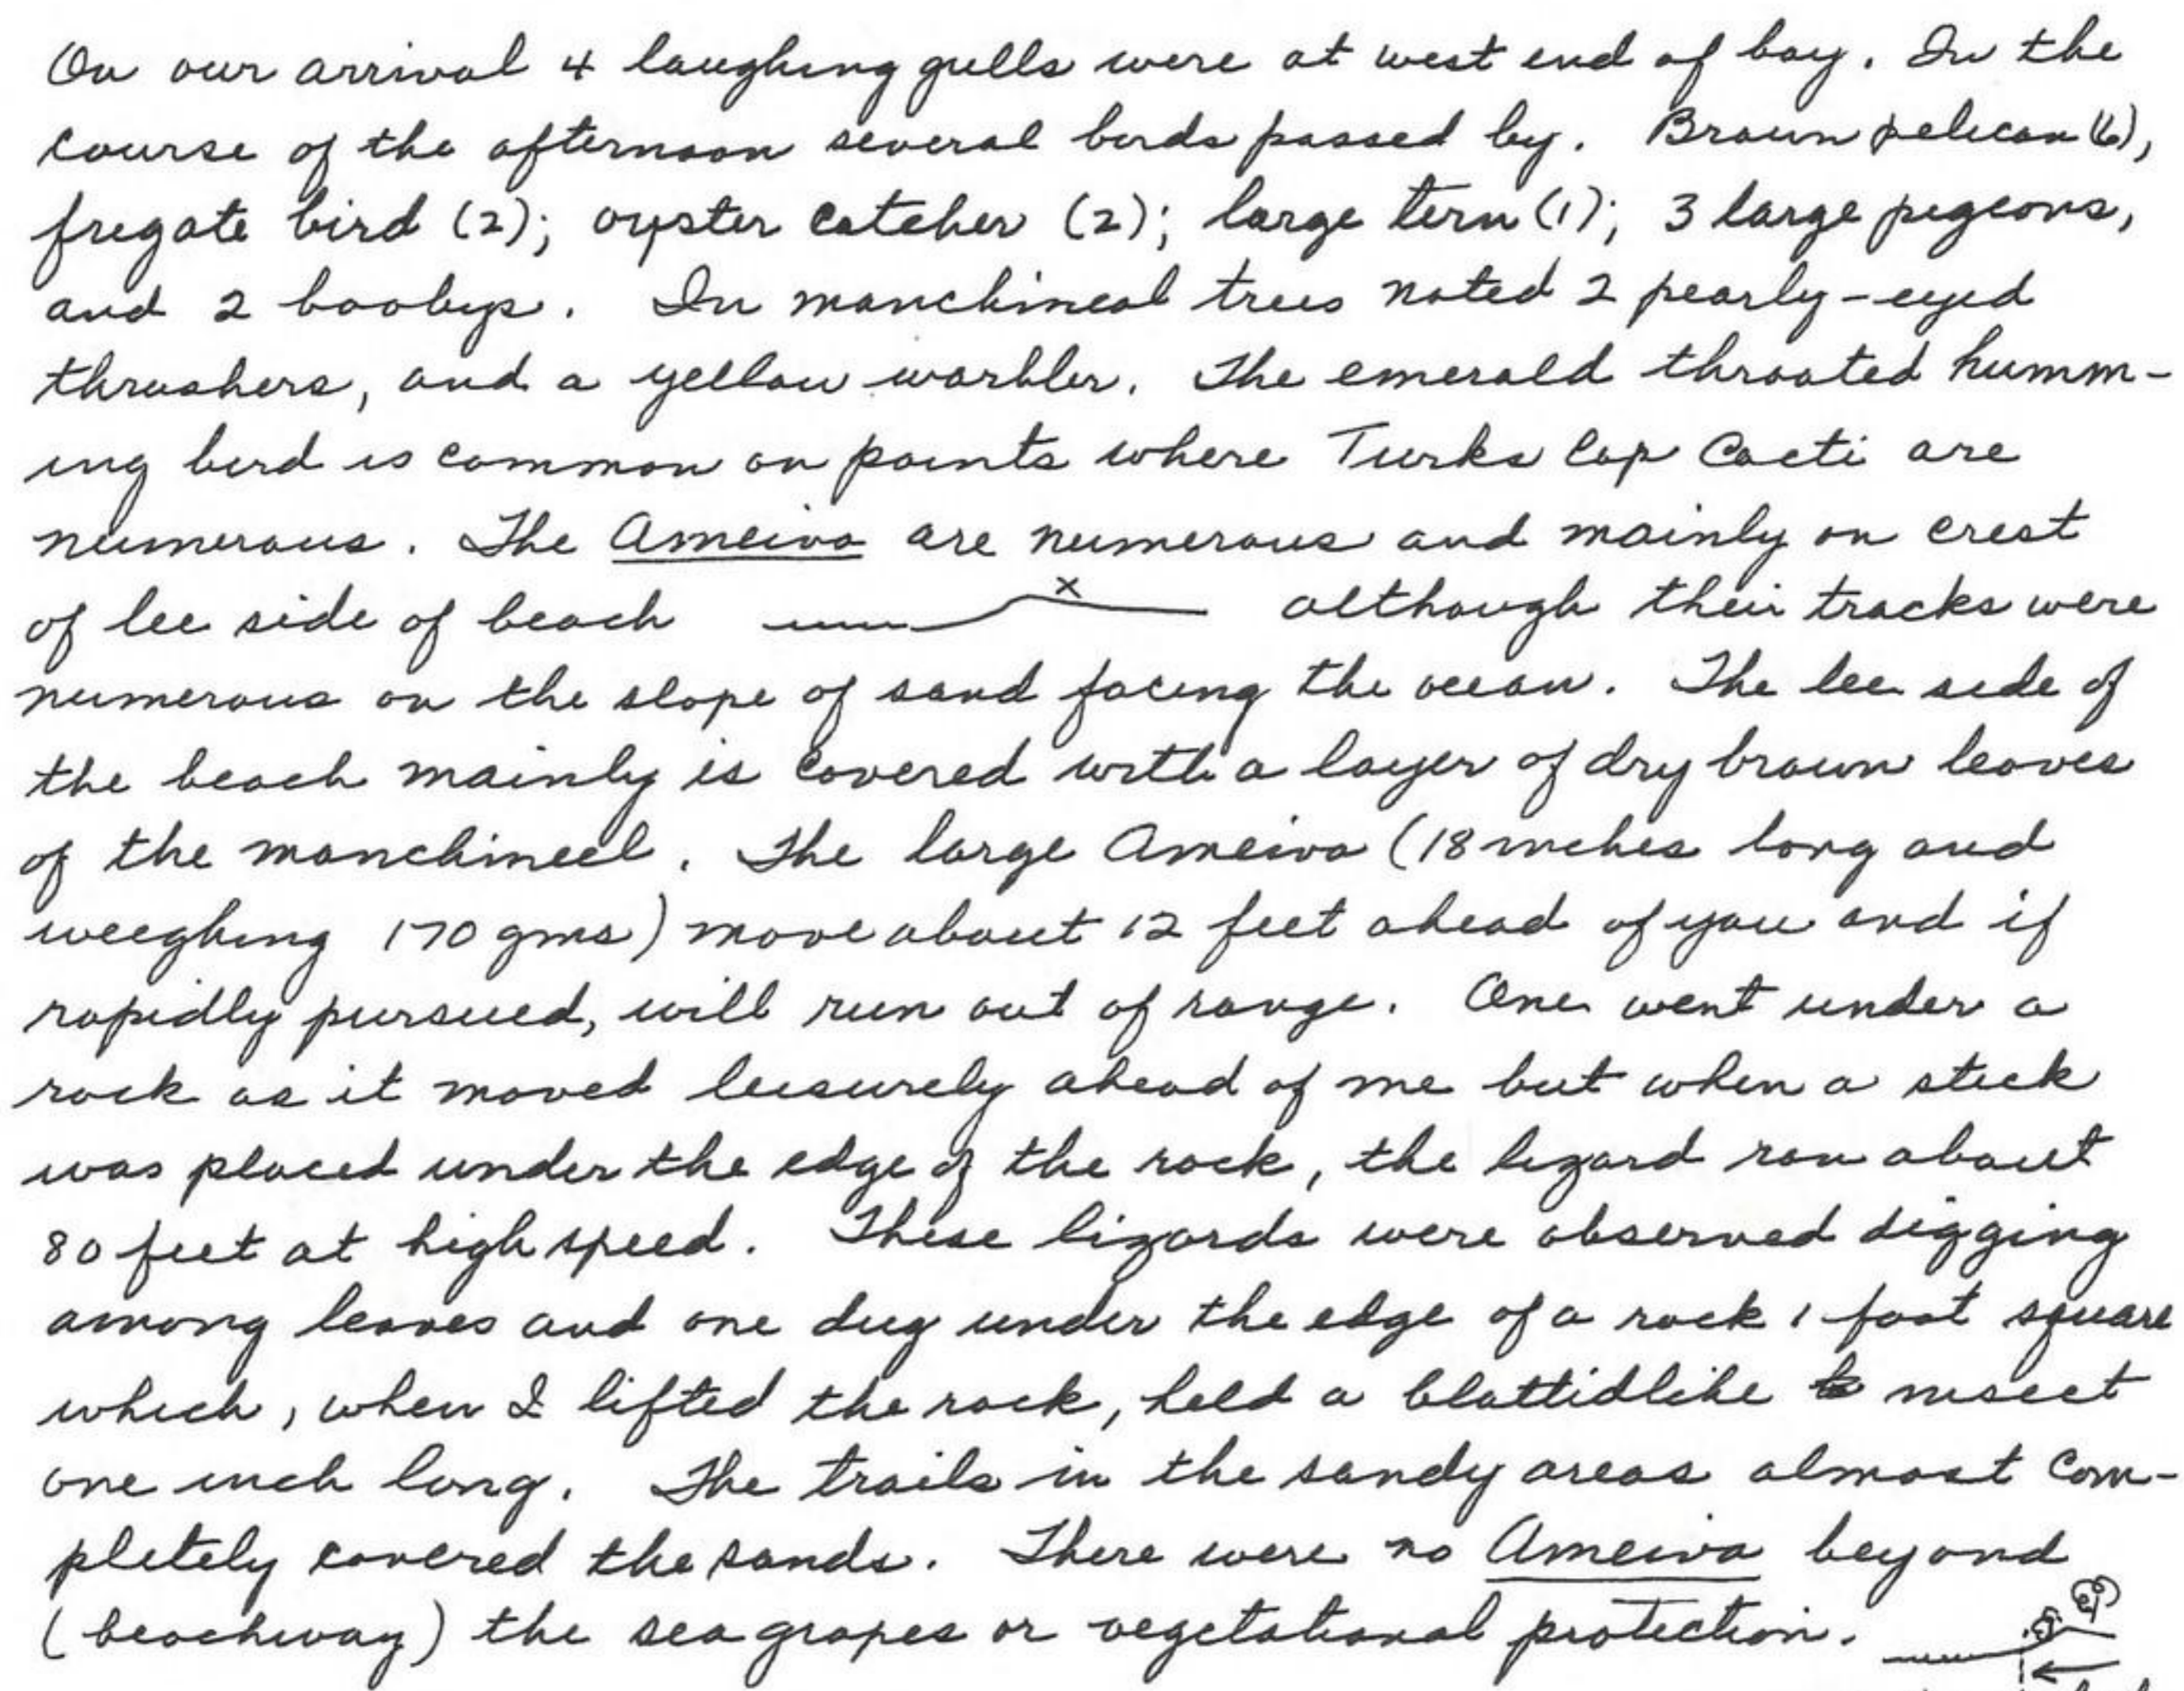 On our arrival 4 laughing gulls were at west end of bay. In the
course of the afternoon several birds passed by. Brown pelican (6),
fregate bird (2); oyster catcher (2); large tern (1); 3 large pigeons,
and 2 boobys. In manchineal trees noted 2 pearly-eyed
thrashers, and a yellow warbler. The emerald throated humm-
ing bird is common on points where Turks Cap Cacti are
numerous. The Ameiva are numerous and mainly on crest
of lee side of beach x although their tracks were
numerous on the slope of sand facing the ocean. The lee side of
the beach mainly is covered with a layer of dry brown leaves
of the manchineel. The large Ameiva (18 inches long and
weighing 170 gms) move about 12 feet ahead of you and if
rapidly pursued, will run out of range. One went under a
rock as it moved leisurely ahead of me but when a stick
was placed under the edge of the rock, the lizard ran about
80 feet at high speed. These lizards were observed digging
among leaves and one dug under the edge of a rock 1 foot square
which, when I lifted the rock, held a blattidlike insect
one inch long. The trails in the sandy areas almost com-
pletely covered the sands. There were no Ameiva beyond
(beachway) the sea grapes or vegetational protection.